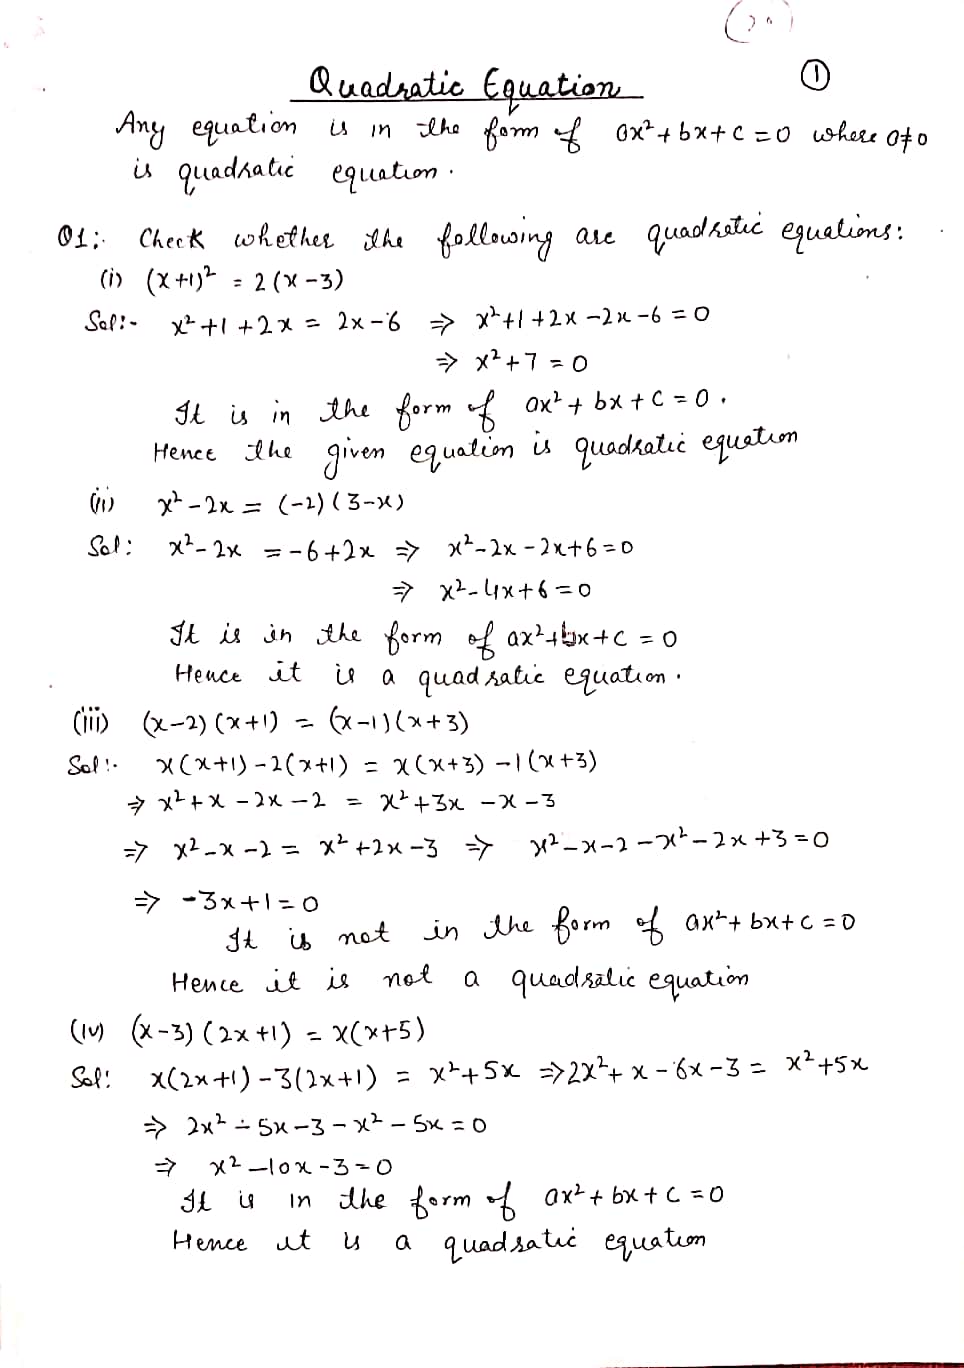 ①
Quadratic Equation
Any equation is in the form of ax² + bx + c = 0 where a≠0
is quadratic equation.
Q1:- Check whether the following are quadratic equations:
(i) (x+1)² = 2(x-3)
Sol:- x²+1+2x = 2x-6 ⇒ x²+1+2x-2x-6 = 0
⇒ x²+7 = 0
It is in the form of ax² + bx + c = 0.
Hence the given equation is quadratic equation
(ii) x²-2x = (-2)(3-x)
Sol: x²-2x = -6+2x ⇒ x²-2x-2x+6=0
⇒ x²-4x+6=0
It is in the form of ax²+bx+c = 0
Hence it is a quadratic equation.
(iii) (x-2)(x+1) = (x-1)(x+3)
Sol:- x(x+1)-2(x+1) = x(x+3)-1(x+3)
⇒ x²+x-2x-2 = x²+3x-x-3
⇒ x²-x-2 = x²+2x-3 ⇒ x²-x-2-x²-2x+3=0
⇒ -3x+1=0
It is not in the form of ax²+bx+c=0
Hence it is not a quadratic equation
(iv) (x-3)(2x+1) = x(x+5)
Sol: x(2x+1)-3(2x+1) = x²+5x ⇒2x²+x-6x-3 = x²+5x
⇒ 2x²-5x-3-x²-5x=0
⇒ x²-10x-3=0
It is in the form of ax²+bx+c=0
Hence it is a quadratic equation